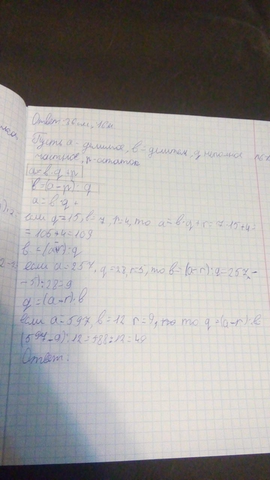 Ответ: 
Пусть a- делимое, b- делитель, q неполное
частное, r- остаток
a=b q+r
b=(a-r): q
a = b q
если q=15, b 7, r=4, то a=b·q+r= 7·15+4=
=105+4=109
b = (a-r):q
если a=257, q=28, r=5, то b=(a-r):q=257-
-5):28=9
q=(a-r):b
если a=597, b=12 r=9, то q=(a-r):b
(597-9):12=588:12=49
Ответ: